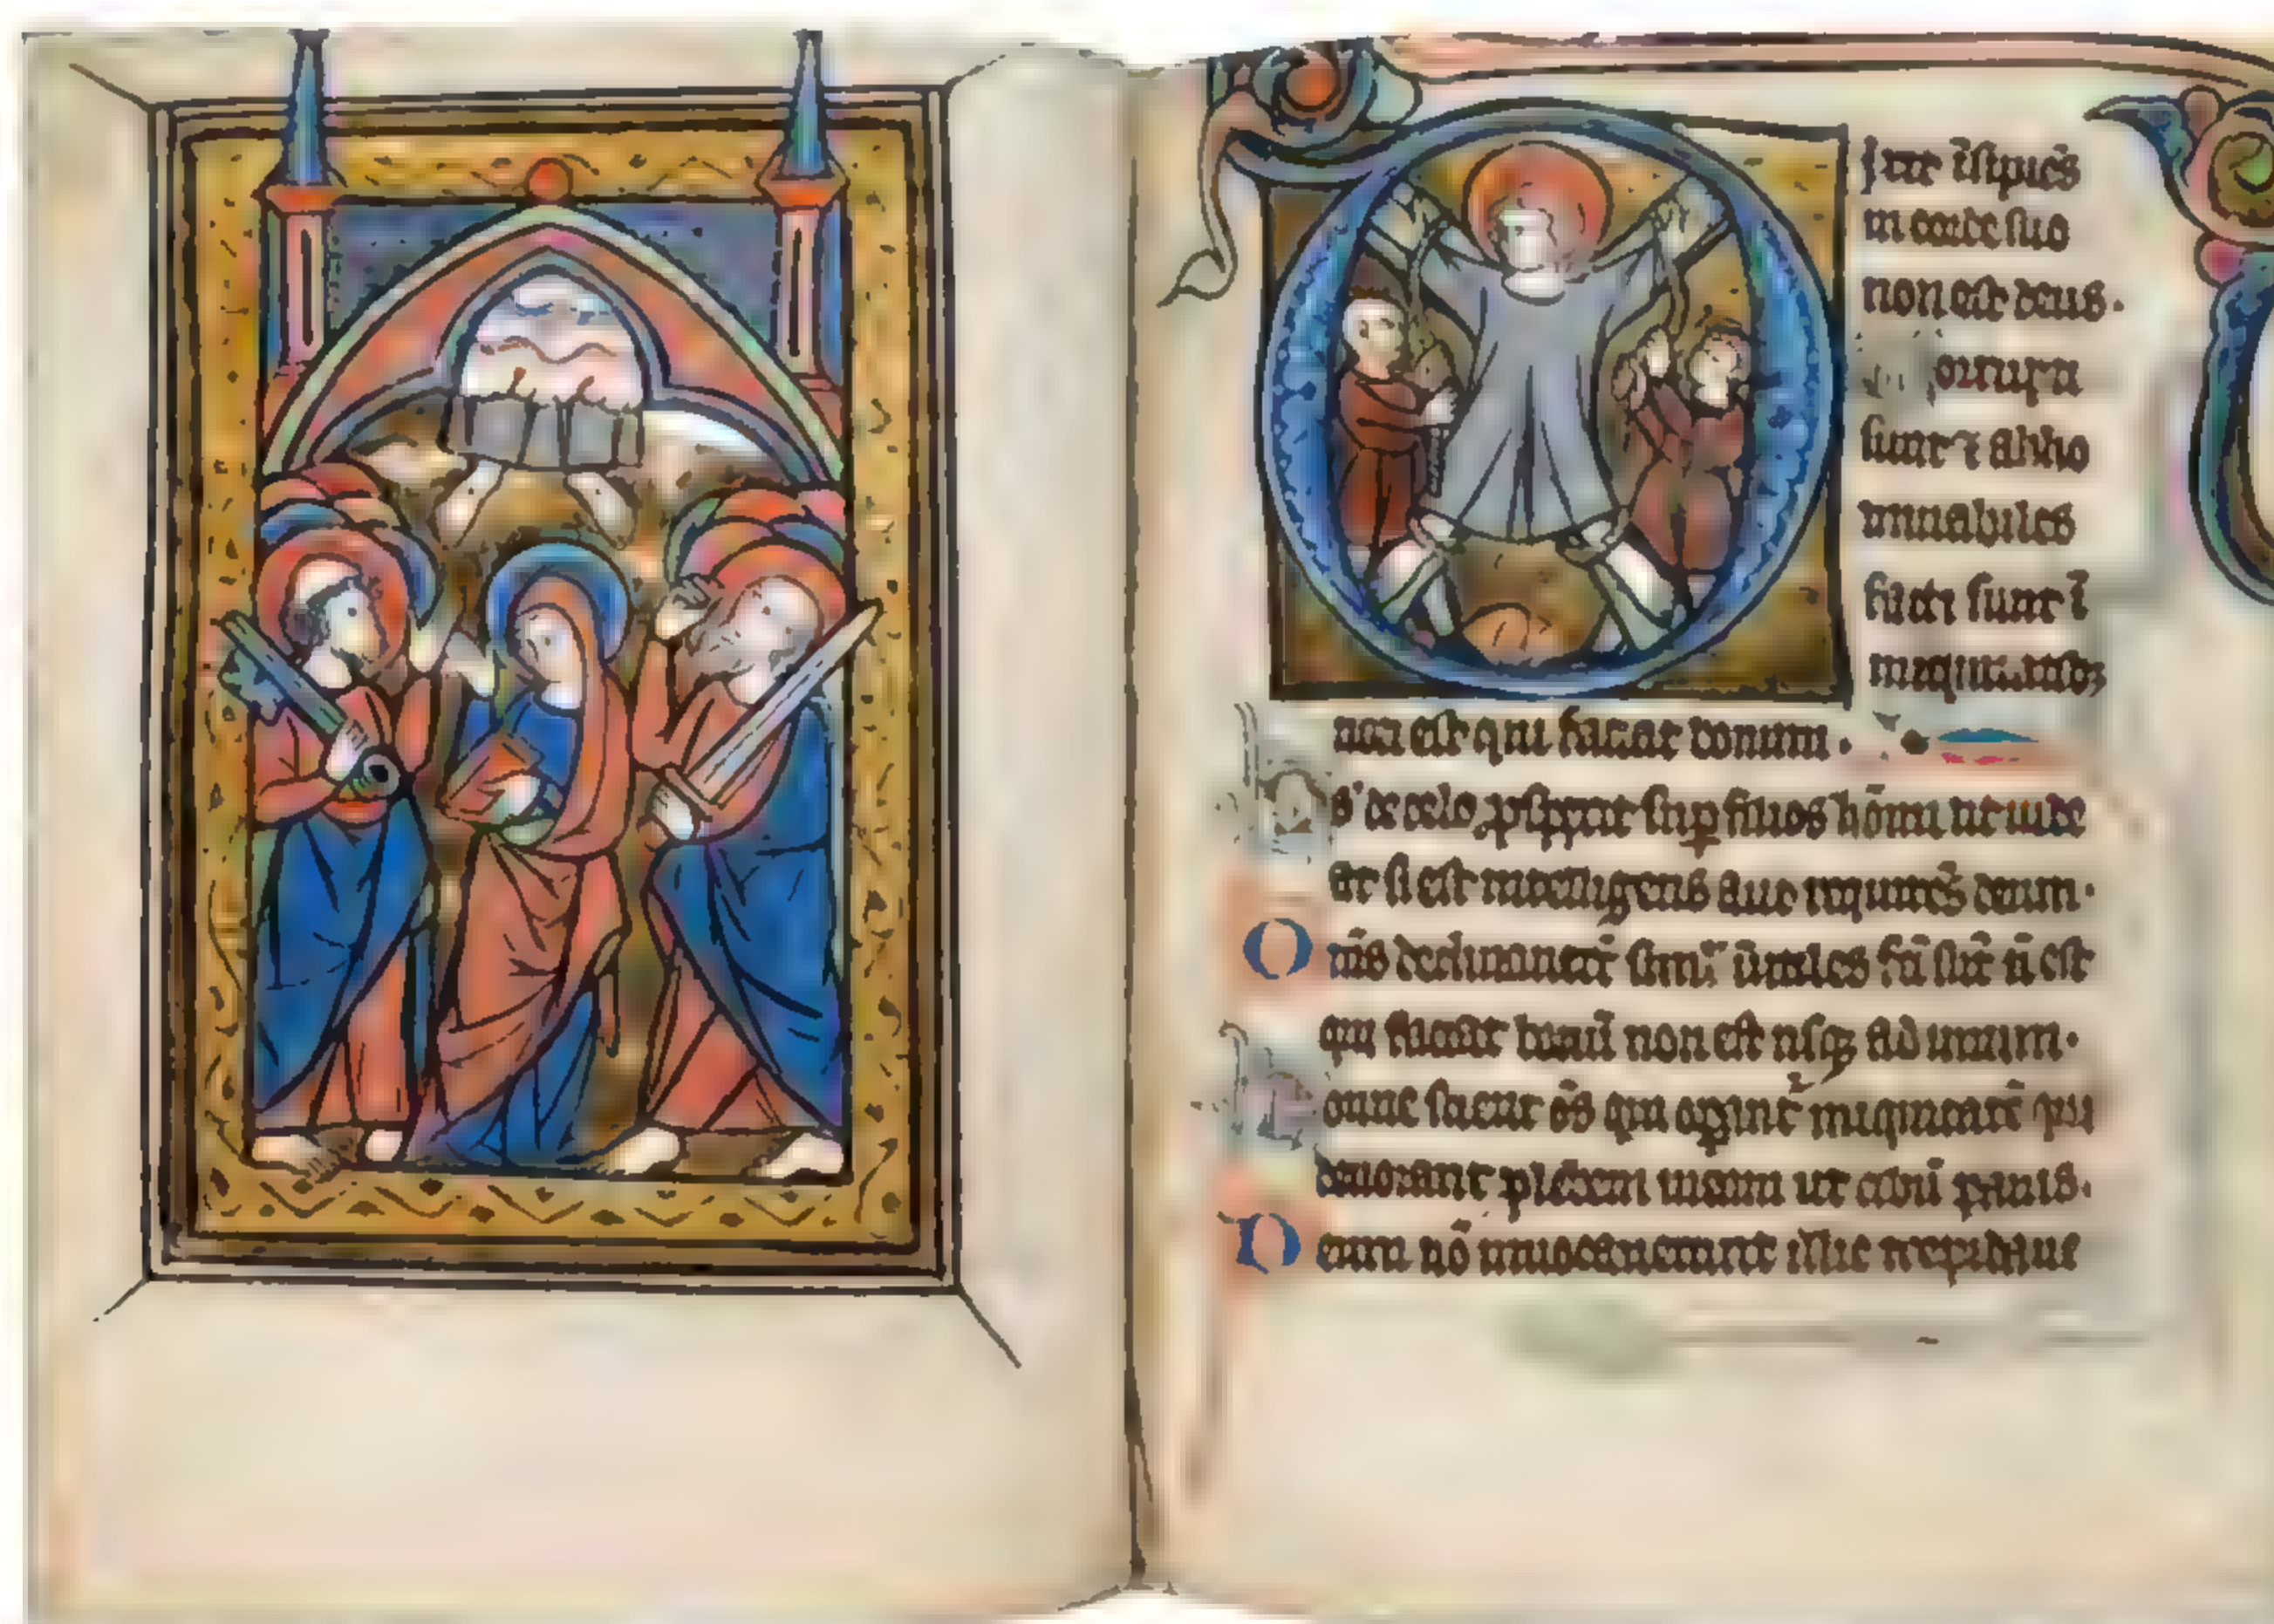 Ixit īsipiēs
in corde suo
non est deus.
Corrupti
sunt ⁊ abho
minabiles
facti sunt ī
iniquitatibꝫ
non est qui faciat bonum.
Ds' de celo ꝓspexit suꝑ filios hōmī ut uide
at si est intelligens aut requirēs deum.
Omēs declinauerūt simĺ īutiles fcī sūt ñ est
qui faciat bonū non est usqꝫ ad unum.
Nonne scient oms qui oꝑant̄ iniquitatē qui
deuorant plebem meam ut cibū panis.
Deum nō inuocauerunt illic trepidaue